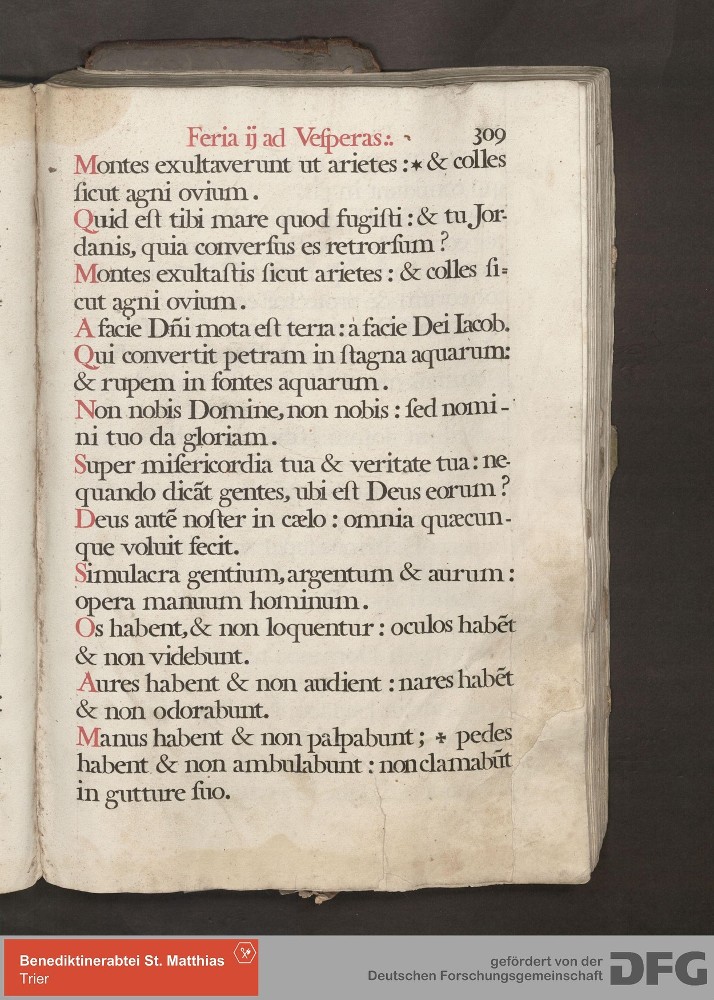 Feria ij ad Veſperas:. 309
Montes exultaverunt ut arietes :* & colles
ſicut agni ovium .
Quid eſt tibi mare quod fugiſti : & tu Jor-
danis, quia converſus es retrorſum ?
Montes exultaſtis ſicut arietes : & colles ſi=
cut agni ovium .
A facie Dñi mota eſt terra : à facie Dei Iacob.
Qui convertit petram in ſtagna aquarum:
& rupem in fontes aquarum .
Non nobis Domine, non nobis : ſed nomi-
ni tuo da gloriam .
Super miſericordia tua & veritate tua : ne-
quando dicãt gentes, ubi eſt Deus eorum ?
Deus autẽ noſter in cælo : omnia quæcun-
que voluit fecit.
Simulacra gentium, argentum & aurum :
opera manuum hominum .
Os habent, & non loquentur : oculos habẽt
& non videbunt.
Aures habent & non audient : nares habẽt
& non odorabunt.
Manus habent & non palpabunt ; ✢ pedes
habent & non ambulabunt : non clamabũt
in gutture ſuo.
Benediktinerabtei St. Matthias
Trier
gefördert von der
Deutschen Forschungsgemeinschaft DFG